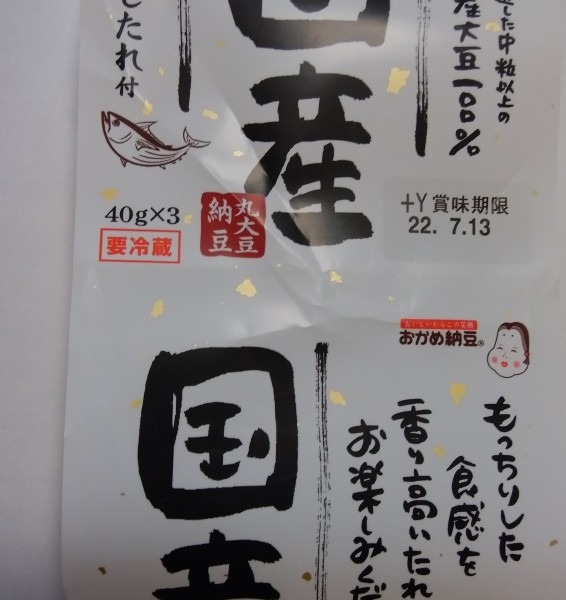 した中粒以上の
産大豆一〇〇%
国産
したれ付
40g×3
要冷蔵
丸大豆
納豆
+Y 賞味期限
22. 7.13
おいしい
おかめ納豆®
もっちりした
食感を
香り高いたれ
お楽しみくだ
国産